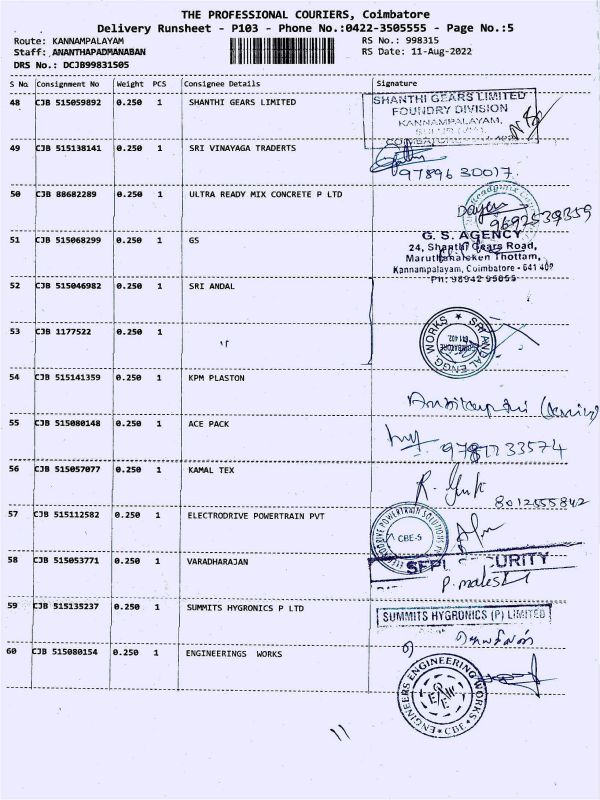 THE PROFESSIONAL COURIERS, Coimbatore
Delivery Runsheet - P103 - Phone No.:0422-3505555 - Page No.:5
Route: KANNAMPALAYAM RS No.: 998315
Staff: ANANTHAPADMANABAN RS Date: 11-Aug-2022
DRS No.: DCJB99831505
S No. Consignment No Weight PCS Consignee Details Signature
48 CJB 515059892 0.250 1 SHANTHI GEARS LIMITED
SHANTHI GEARS LIMITED
FOUNDRY DIVISION
KANNAMPALAYAM,
49 CJB 515138141 0.250 1 SRI VINAYAGA TRADERTS
9789630017
50 CJB 88682289 0.250 1 ULTRA READY MIX CONCRETE P LTD
9692539359
51 CJB 515068299 0.250 1 GS
G. S. AGENCY
24, Shanthi Gears Road,
Thottam,
Kannampalayam, Coimbatore - 641 402
Ph: 98942 95055
52 CJB 515046982 0.250 1 SRI ANDAL
53 CJB 1177522 0.250 1 "
SRI ANDAL ENGG. WORKS
COIMBATORE
641 402
54 CJB 515141359 0.250 1 KPM PLASTON
55 CJB 515080148 0.250 1 ACE PACK
56 CJB 515057077 0.250 1 KAMAL TEX
57 CJB 515112582 0.250 1 ELECTRODRIVE POWERTRAIN PVT
CBE-5
58 CJB 515053771 0.250 1 VARADHARAJAN
59 CJB 515135237 0.250 1 SUMMITS HYGRONICS P LTD
SUMMITS HYGRONICS (P) LIMITED
60 CJB 515080154 0.250 1 ENGINEERINGS WORKS
ENGINEERS ENGINEERING WORKS
CBE